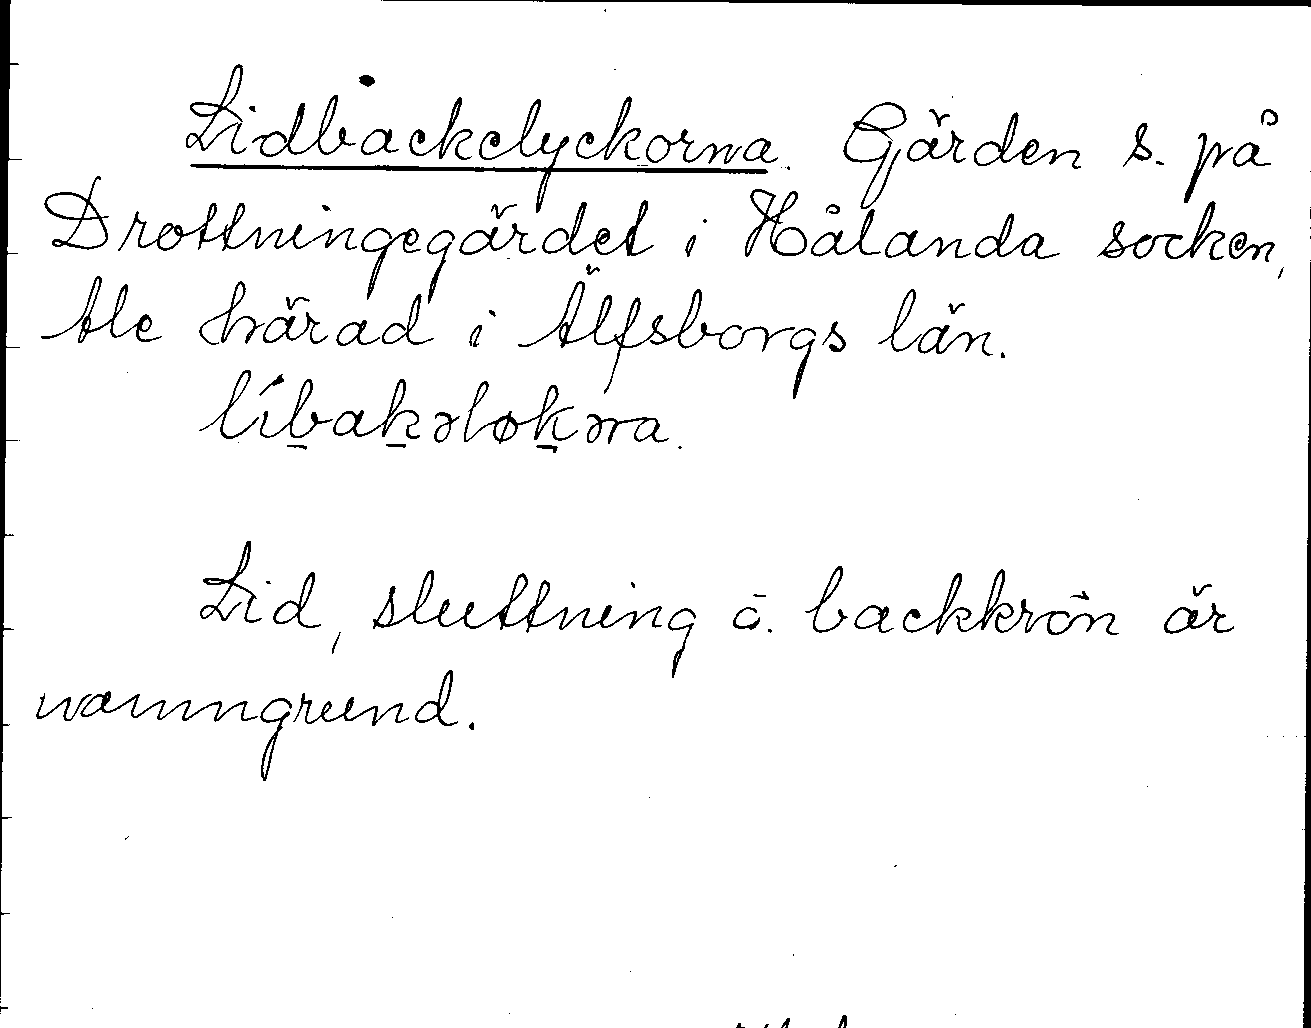 Lidbackelyckorna. Gärden s. på
Drottningegärdet i Hålanda socken,
Ale härad i Älfsborgs län.
líb̲ak̲əløk̲əra.
Lid, sluttning o. backkrön är
namngrund.